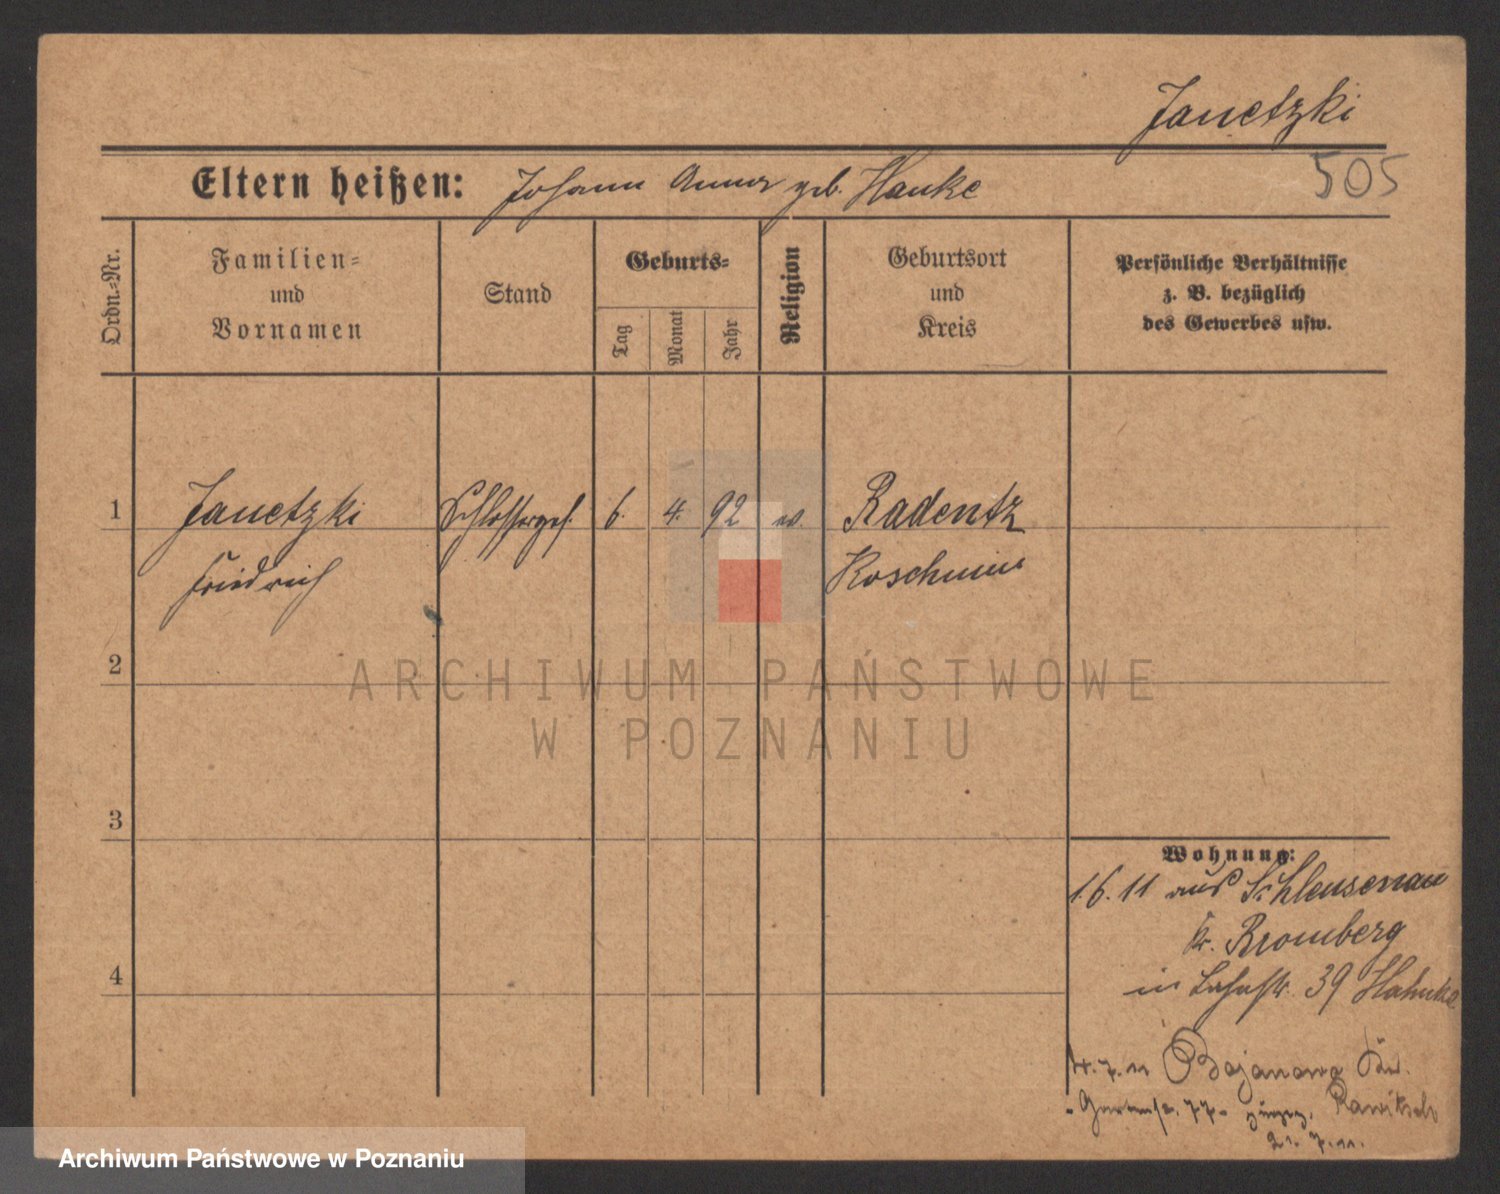 Janetzki
505
Eltern heißen: Johann Anna geb. Hanke
Ordn.=Nr.
Familien=
und
Vornamen
Stand
Geburts=
Tag
Monat
Jahr
Religion
Geburtsort
und
Kreis
Persönliche Verhältnisse
z. B. bezüglich
des Gewerbes usw.
1 Janetzki Schlosserges. 6. 4. 92 ev. Radentz
Friedrich Koschmin
2
3
4
Wohnung:
1.6.11 aus Schleusenau
Kr. Bromberg
in 39 Hahnke
7.11 Bojanowo Kr.
Gartenstr. 77 Rawitsch
21.7.11.
ARCHIWUM PAŃSTWOWE
W POZNANIU
Archiwum Państwowe w Poznaniu